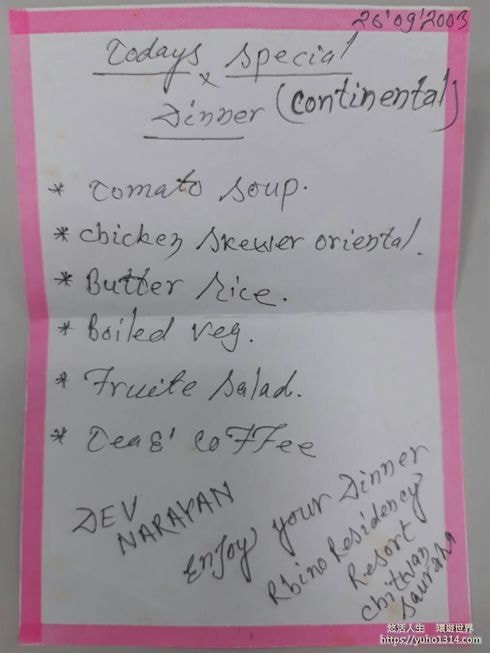 26'09'2003
Todays Special
x
Dinner (Continental)
* Tomato Soup.
* Chicken Skewer oriental.
* Butter Rice.
* Boiled veg.
* Fruite Salad.
* Tea & Coffee
DEV
NARAYAN
Enjoy your Dinner
Rhino Residency
Resort
Chitwan
Sauraha
悠活人生 環遊世界
https://yuho1314.com